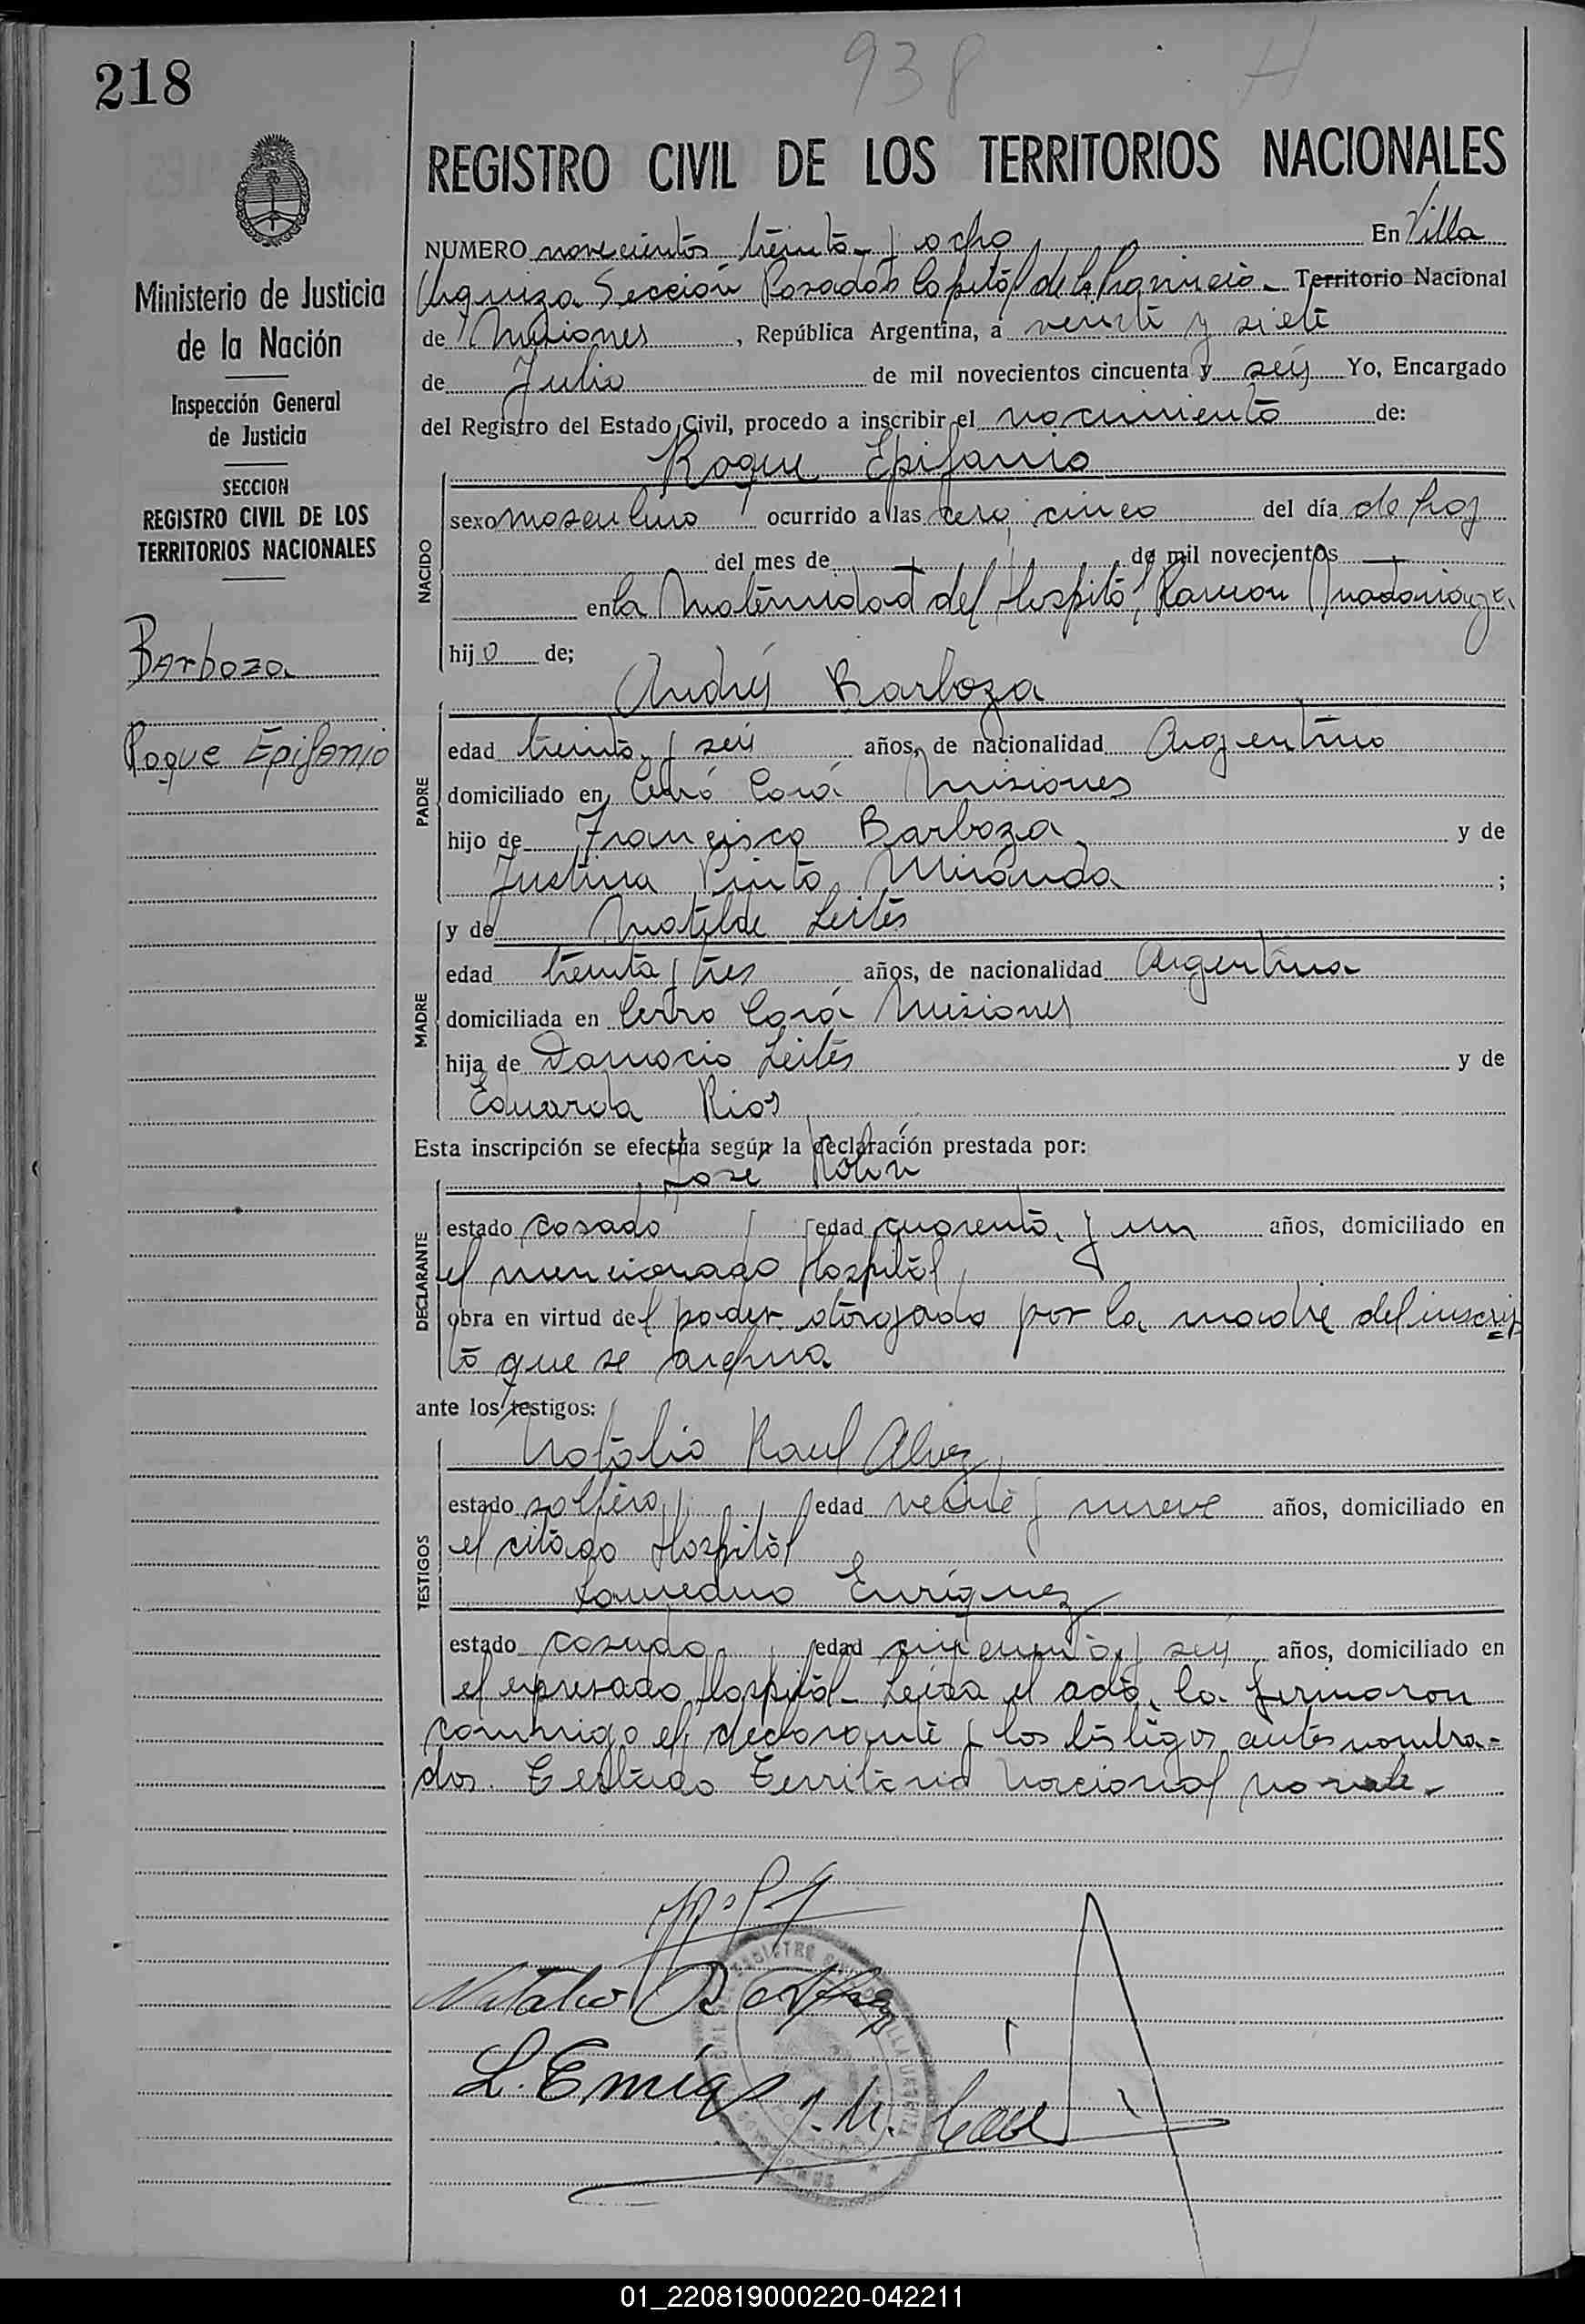 218
938
H
REGISTRO CIVIL DE LOS TERRITORIOS NACIONALES
NUMERO novecientos treinta y ocho En Villa
Urquiza Sección Posadas Capital de la Provincia - Territorio Nacional
de Misiones, República Argentina, a veinte y siete
de Julio de mil novecientos cincuenta y seis Yo, Encargado
del Registro del Estado Civil, procedo a inscribir el nacimiento de:
Ministerio de Justicia
de la Nación
Inspección General
de Justicia
SECCION
REGISTRO CIVIL DE LOS
TERRITORIOS NACIONALES
Barboza
Roque Epifanio
NACIDO
Roque Epifanio
sexo masculino ocurrido a las cero cinco del día de hoy
del mes de de mil novecientos
en la Maternidad del Hospital Ramon Madariaga
hijo de;
PADRE
Andrés Barboza
edad treinta y seis años, de nacionalidad Argentino
domiciliado en Cerró Corá Misiones
hijo de Francisco Barboza y de
Justina Pinto Miranda ;
MADRE
y de Matilde Leites
edad treinta y tres años, de nacionalidad Argentina
domiciliada en Cerro Corá Misiones
hija de Damacio Leites y de
Eduarda Rios
Esta inscripción se efectúa según la declaración prestada por:
DECLARANTE
José
estado casado edad cuarenta y un años, domiciliado en
el mencionado Hospital
obra en virtud del poder otorgado por la madre del inscrip
to que se archiva
ante los testigos:
TESTIGOS
Natalio Raul Alvez
estado soltero edad veinte y nueve años, domiciliado en
el citado Hospital
Enriquez
estado casado edad cincuenta y seis años, domiciliado en
el expresado Hospital - Leida el acta, la firmaron
conmigo el declarante y los testigos antes nombra=
dos. Testado Territorio Nacional no vale.
Natalio R Alvez
L. Enriq
J. M.
01_220819000220-042211